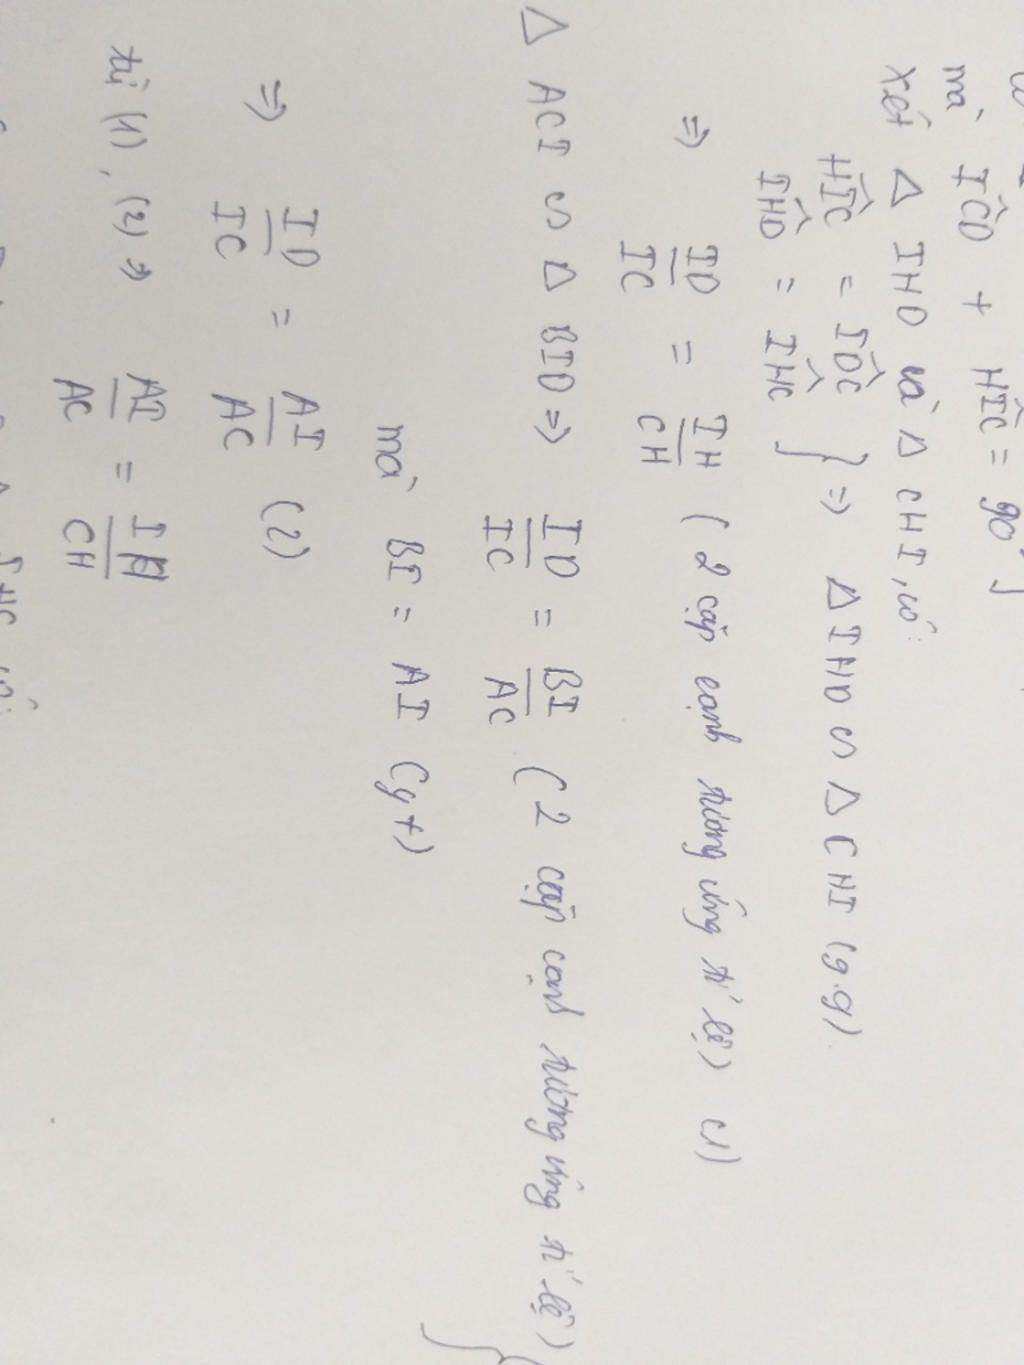 mà IĈD + HÎC = 90° }
Xét Δ IHD và Δ CHI, có:
HÎC = ID̂C
IĤD = IĤC } ⇒ ΔIHD ∽ ΔCHI (g.g).
⇒ ID/IC = IH/CH (2 cặp cạnh tương ứng tỉ lệ) (1)
Δ ACI ∽ Δ BID ⇒ ID/IC = BI/AC (2 cặp cạnh tương ứng tỉ lệ) }
mà BI = AI (gt)
⇒ ID/IC = AI/AC (2)
từ (1), (2) ⇒ AI/AC = IH/CH